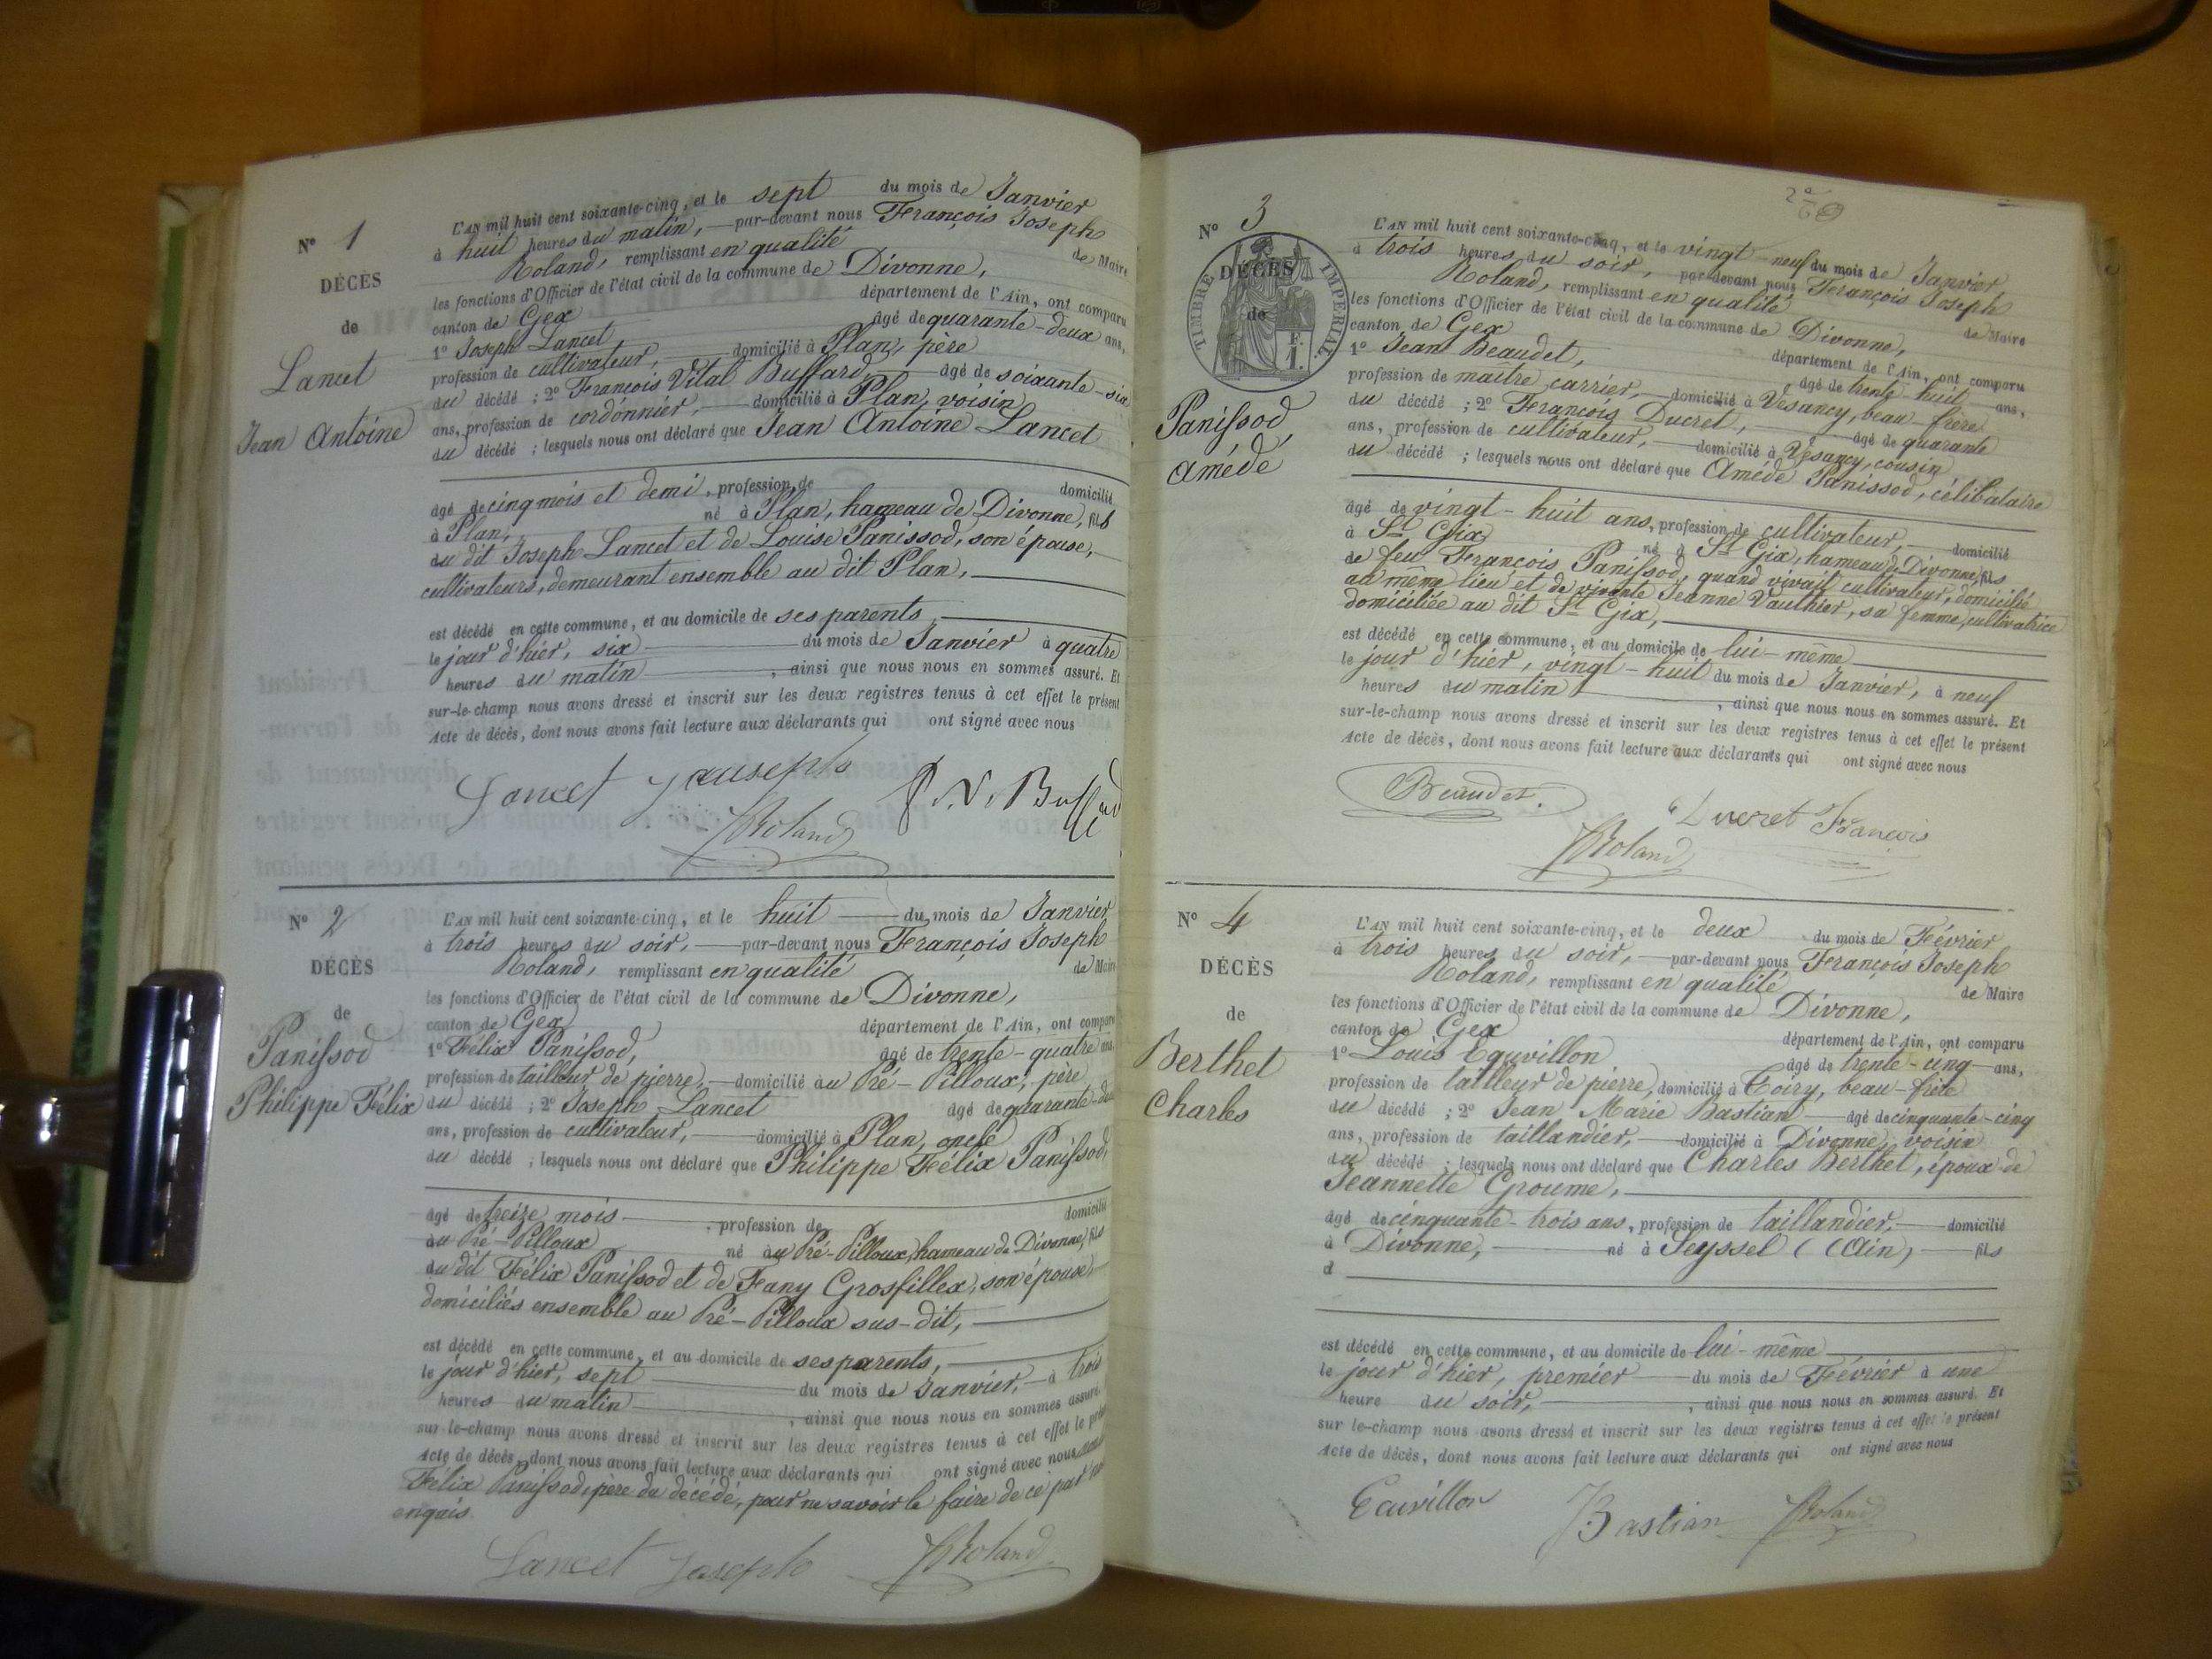 N° 1
DÉCÈS
de
Lancet
Jean Antoine
L'AN mil huit cent soixante-cinq, et le sept du mois de Janvier
à huit heures du matin, par-devant nous François Joseph
Roland, remplissant en qualité de Maire
les fonctions d'Officier de l'état civil de la commune de Divonne,
canton de Gex département de l'Ain, ont comparu
1° Joseph Lancet âgé de quarante-deux ans,
profession de cultivateur, domicilié à Plan, père
du décédé ; 2° François Vital Buffard, âgé de soixante-six
ans, profession de cordonnier, domicilié à Plan, voisin
du décédé ; lesquels nous ont déclaré que Jean Antoine Lancet
âgé de cinq mois et demi, profession de domicilié
à Plan, né à Plan, hameau de Divonne, fils
du dit Joseph Lancet et de Louise Panissod, son épouse,
cultivateurs, demeurant ensemble au dit Plan,
est décédé en cette commune, et au domicile de ses parents
le jour d'hier, six du mois de Janvier à quatre
heures du matin, ainsi que nous nous en sommes assuré. Et
sur-le-champ nous avons dressé et inscrit sur les deux registres tenus à cet effet le présent
Acte de décès, dont nous avons fait lecture aux déclarants qui ont signé avec nous
Lancet Jauseph
F. V. Buffard
Roland
N° 2
DÉCÈS
de
Panissod
Philippe Félix
L'AN mil huit cent soixante-cinq, et le huit du mois de Janvier
à trois heures du soir, par-devant nous François Joseph
Roland, remplissant en qualité de Maire
les fonctions d'Officier de l'état civil de la commune de Divonne,
canton de Gex département de l'Ain, ont comparu
1° Félix Panissod, âgé de trente-quatre ans
profession de tailleur de pierre, domicilié au Pré-Pilloux, père
du décédé ; 2° Joseph Lancet âgé de quarante-deux
ans, profession de cultivateur, domicilié à Plan, oncle
du décédé ; lesquels nous ont déclaré que Philippe Félix Panissod,
âgé de treize mois, profession de domicilié
au Pré-Pilloux né au Pré-Pilloux, hameau de Divonne, fils
du dit Félix Panissod et de Fany Grosfillex, son épouse,
domiciliés ensemble au Pré-Pilloux sus-dit,
est décédé en cette commune, et au domicile de ses parents,
le jour d'hier, sept du mois de Janvier, à trois
heures du matin, ainsi que nous nous en sommes assuré.
sur-le-champ nous avons dressé et inscrit sur les deux registres tenus à cet effet le présent
Acte de décès, dont nous avons fait lecture aux déclarants qui ont signé avec nous
Félix Panissod, père du décédé, pour ne savoir le faire de ce par
enquis
Lancet Jaseph
Roland
2e
N° 3
DÉCÈS
de
TIMBRE IMPÉRIAL
F.
1.
Panissod
Amédé
L'AN mil huit cent soixante-cinq, et le vingt-neuf du mois de Janvier
à trois heures du soir, par-devant nous François Joseph
Roland, remplissant en qualité de Maire
les fonctions d'Officier de l'état civil de la commune de Divonne,
canton de Gex département de l'Ain, ont comparu
1° Jean Beaudet, âgé de trente-huit ans,
profession de maître carrier, domicilié à Vesancy, beau-frère
du décédé ; 2° François Ducret, âgé de quarante
ans, profession de cultivateur, domicilié à Vesancy, cousin
du décédé ; lesquels nous ont déclaré que Amédé Panissod, célibataire
âgé de vingt-huit ans, profession de cultivateur, domicilié
à St Gix né à St Gix, hameau de Divonne, fils
de feu François Panissod, quand vivait cultivateur, domicilié
au même lieu et de vivante Jeanne Vauthier, sa femme, cultivatrice
domiciliée au dit St Gix,
est décédé en cette commune, et au domicile de lui-même
le jour d'hier, vingt-huit du mois de Janvier, à neuf
heures du matin, ainsi que nous nous en sommes assuré. Et
sur-le-champ nous avons dressé et inscrit sur les deux registres tenus à cet effet le présent
Acte de décès, dont nous avons fait lecture aux déclarants qui ont signé avec nous
Beaudet.
Ducret François
Roland
N° 4
DÉCÈS
de
Berthet
Charles
L'AN mil huit cent soixante-cinq, et le deux du mois de Février
à trois heures du soir, par-devant nous François Joseph
Roland, remplissant en qualité de Maire
les fonctions d'Officier de l'état civil de la commune de Divonne,
canton de Gex département de l'Ain, ont comparu
1° Louis Equvillon âgé de trente-cinq ans,
profession de tailleur de pierre, domicilié à Thoiry, beau-frère
du décédé ; 2° Jean Marie Bastian âgé de cinquante-cinq
ans, profession de taillandier, domicilié à Divonne, voisin
du décédé ; lesquels nous ont déclaré que Charles Berthet, époux de
Jeannette Groume,
âgé de cinquante-trois ans, profession de taillandier, domicilié
à Divonne, né à Seyssel (Ain) fils
d
est décédé en cette commune, et au domicile de lui-même
le jour d'hier, premier du mois de Février à une
heure du soir, ainsi que nous nous en sommes assuré. Et
sur le-champ nous avons dressé et inscrit sur les deux registres tenus à cet effet le présent
Acte de décès, dont nous avons fait lecture aux déclarants qui ont signé avec nous
Ecuvillon
Bastian
Roland